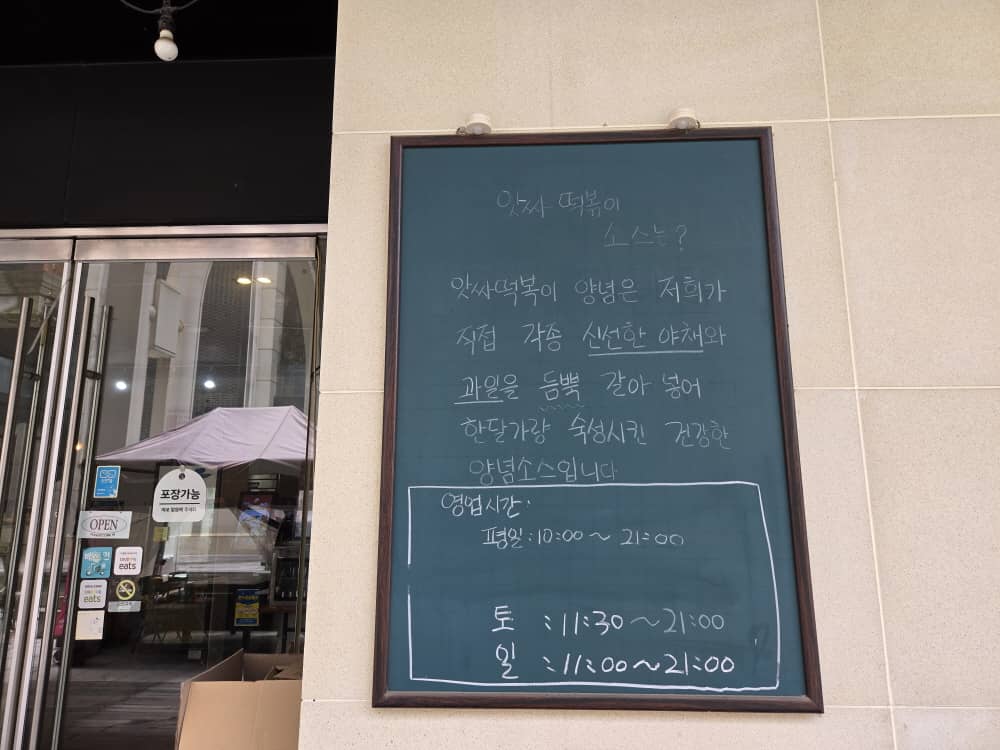 앗싸 떡볶이
소스는?
앗싸떡복이 양념은 저희가
직접 각종 신선한 야채와
과일을 듬뿍 갈아 넣어
한달가량 숙성시킨 건강한
양념소스입니다
영업시간:
평일:10:00~21:00
토 :11:30~21:00
일 :11:00~21:00
포장가능
OPEN
eats
eats